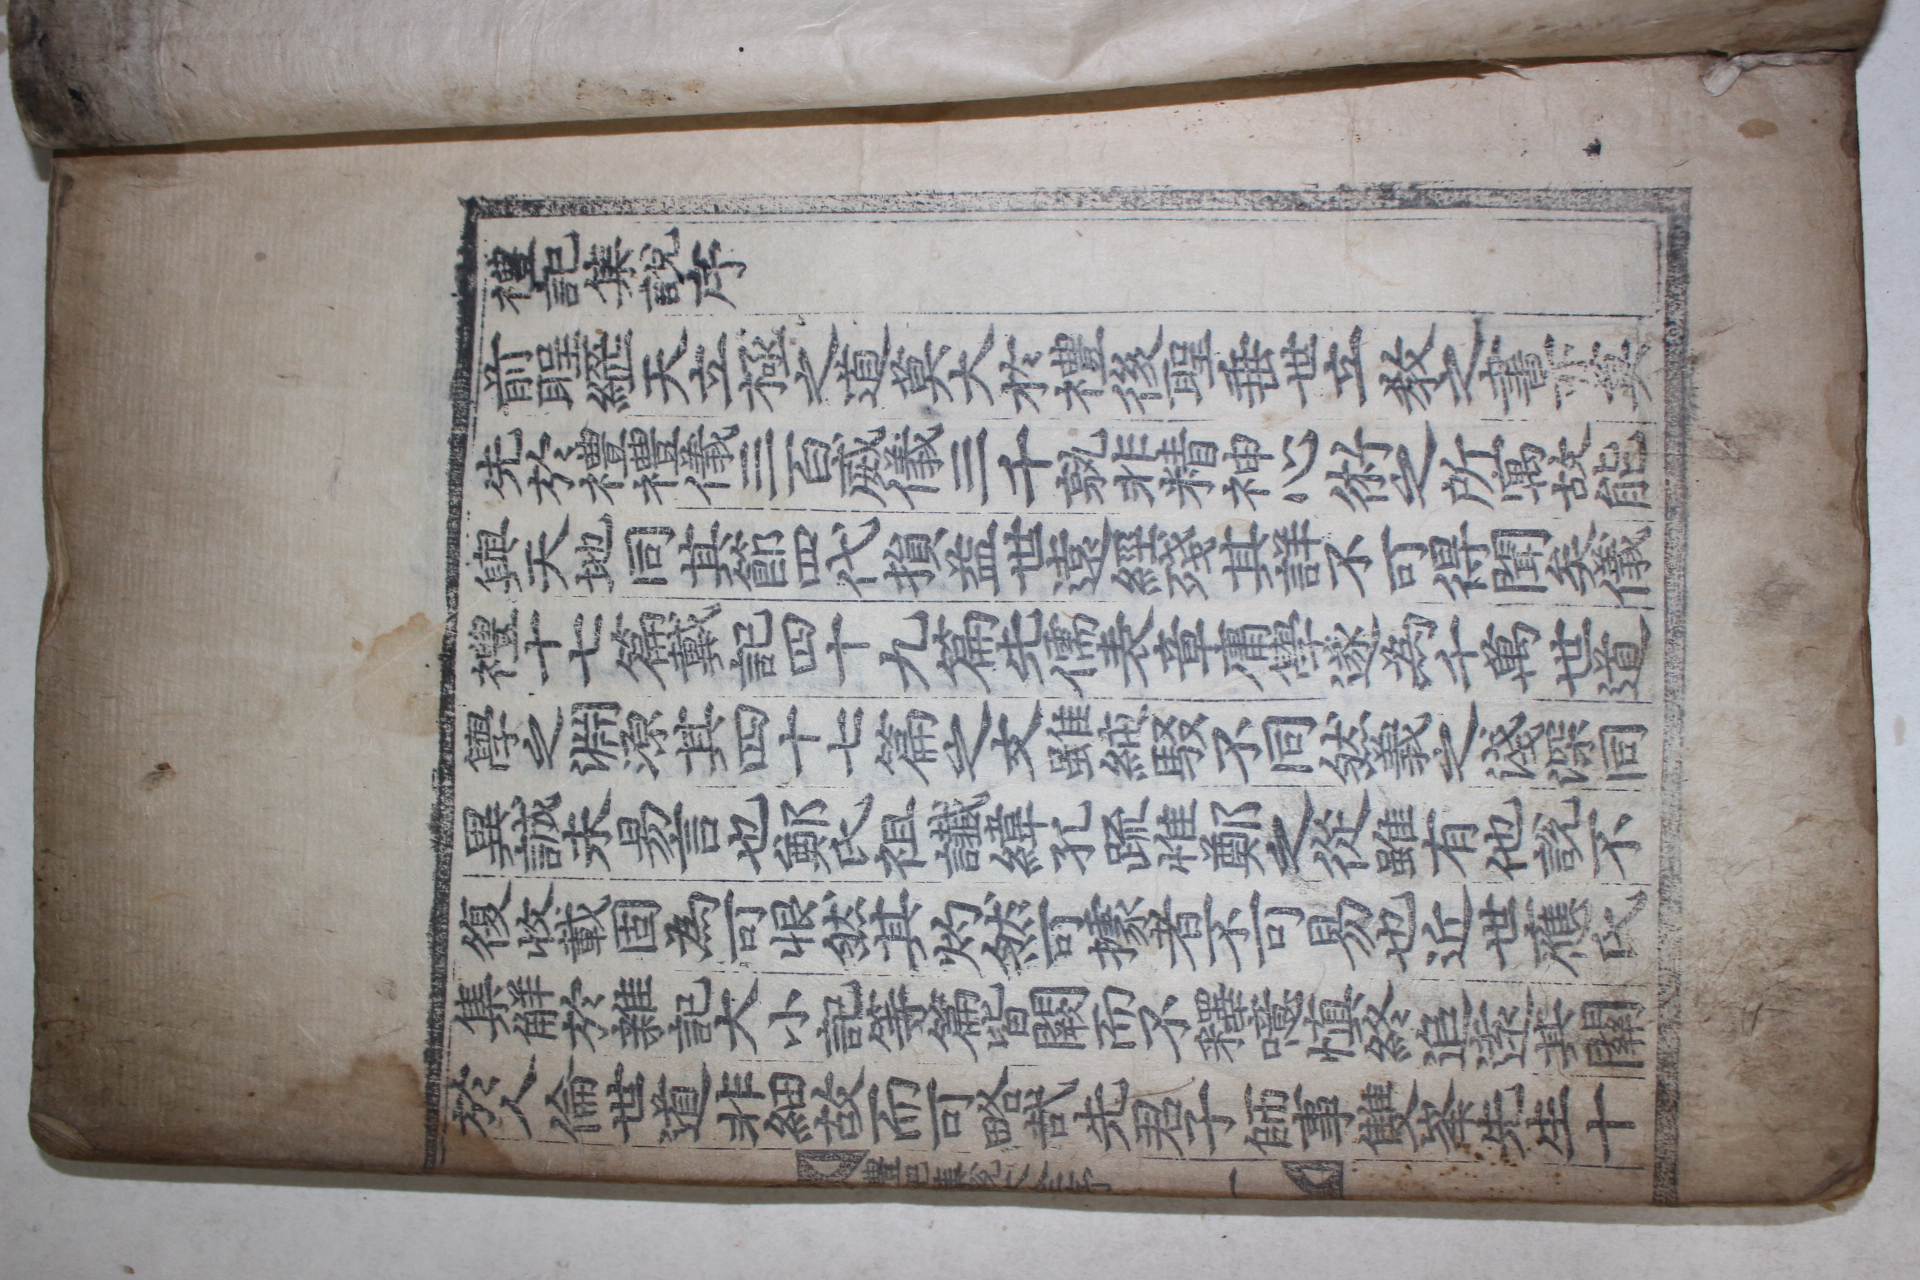 禮記集說序
前聖繼天立極之道莫大扵禮後聖垂世立教之書亦莫
先扵禮禮儀三百威儀三千孰非精神心術之所寓故能
與天地同其節四代損益世遠經殘其詳不可得聞矣儀
禮十七篇戴記四十九篇先儒表章庸學遂為千萬世道
學之淵源其四十七篇之文雖純駁不同然義之淺深同
異誠未易言也鄭氏祖讖緯孔疏惟鄭之從雖有他說不
復收載固為可恨然其灼然可據者不可易也近世應氏
集解扵雜記大小記等篇皆闕而不釋噫慎終追遠其關
扵人倫世道非細故而可略哉先君子師事雙峯先生十
禮記集說大全序 一